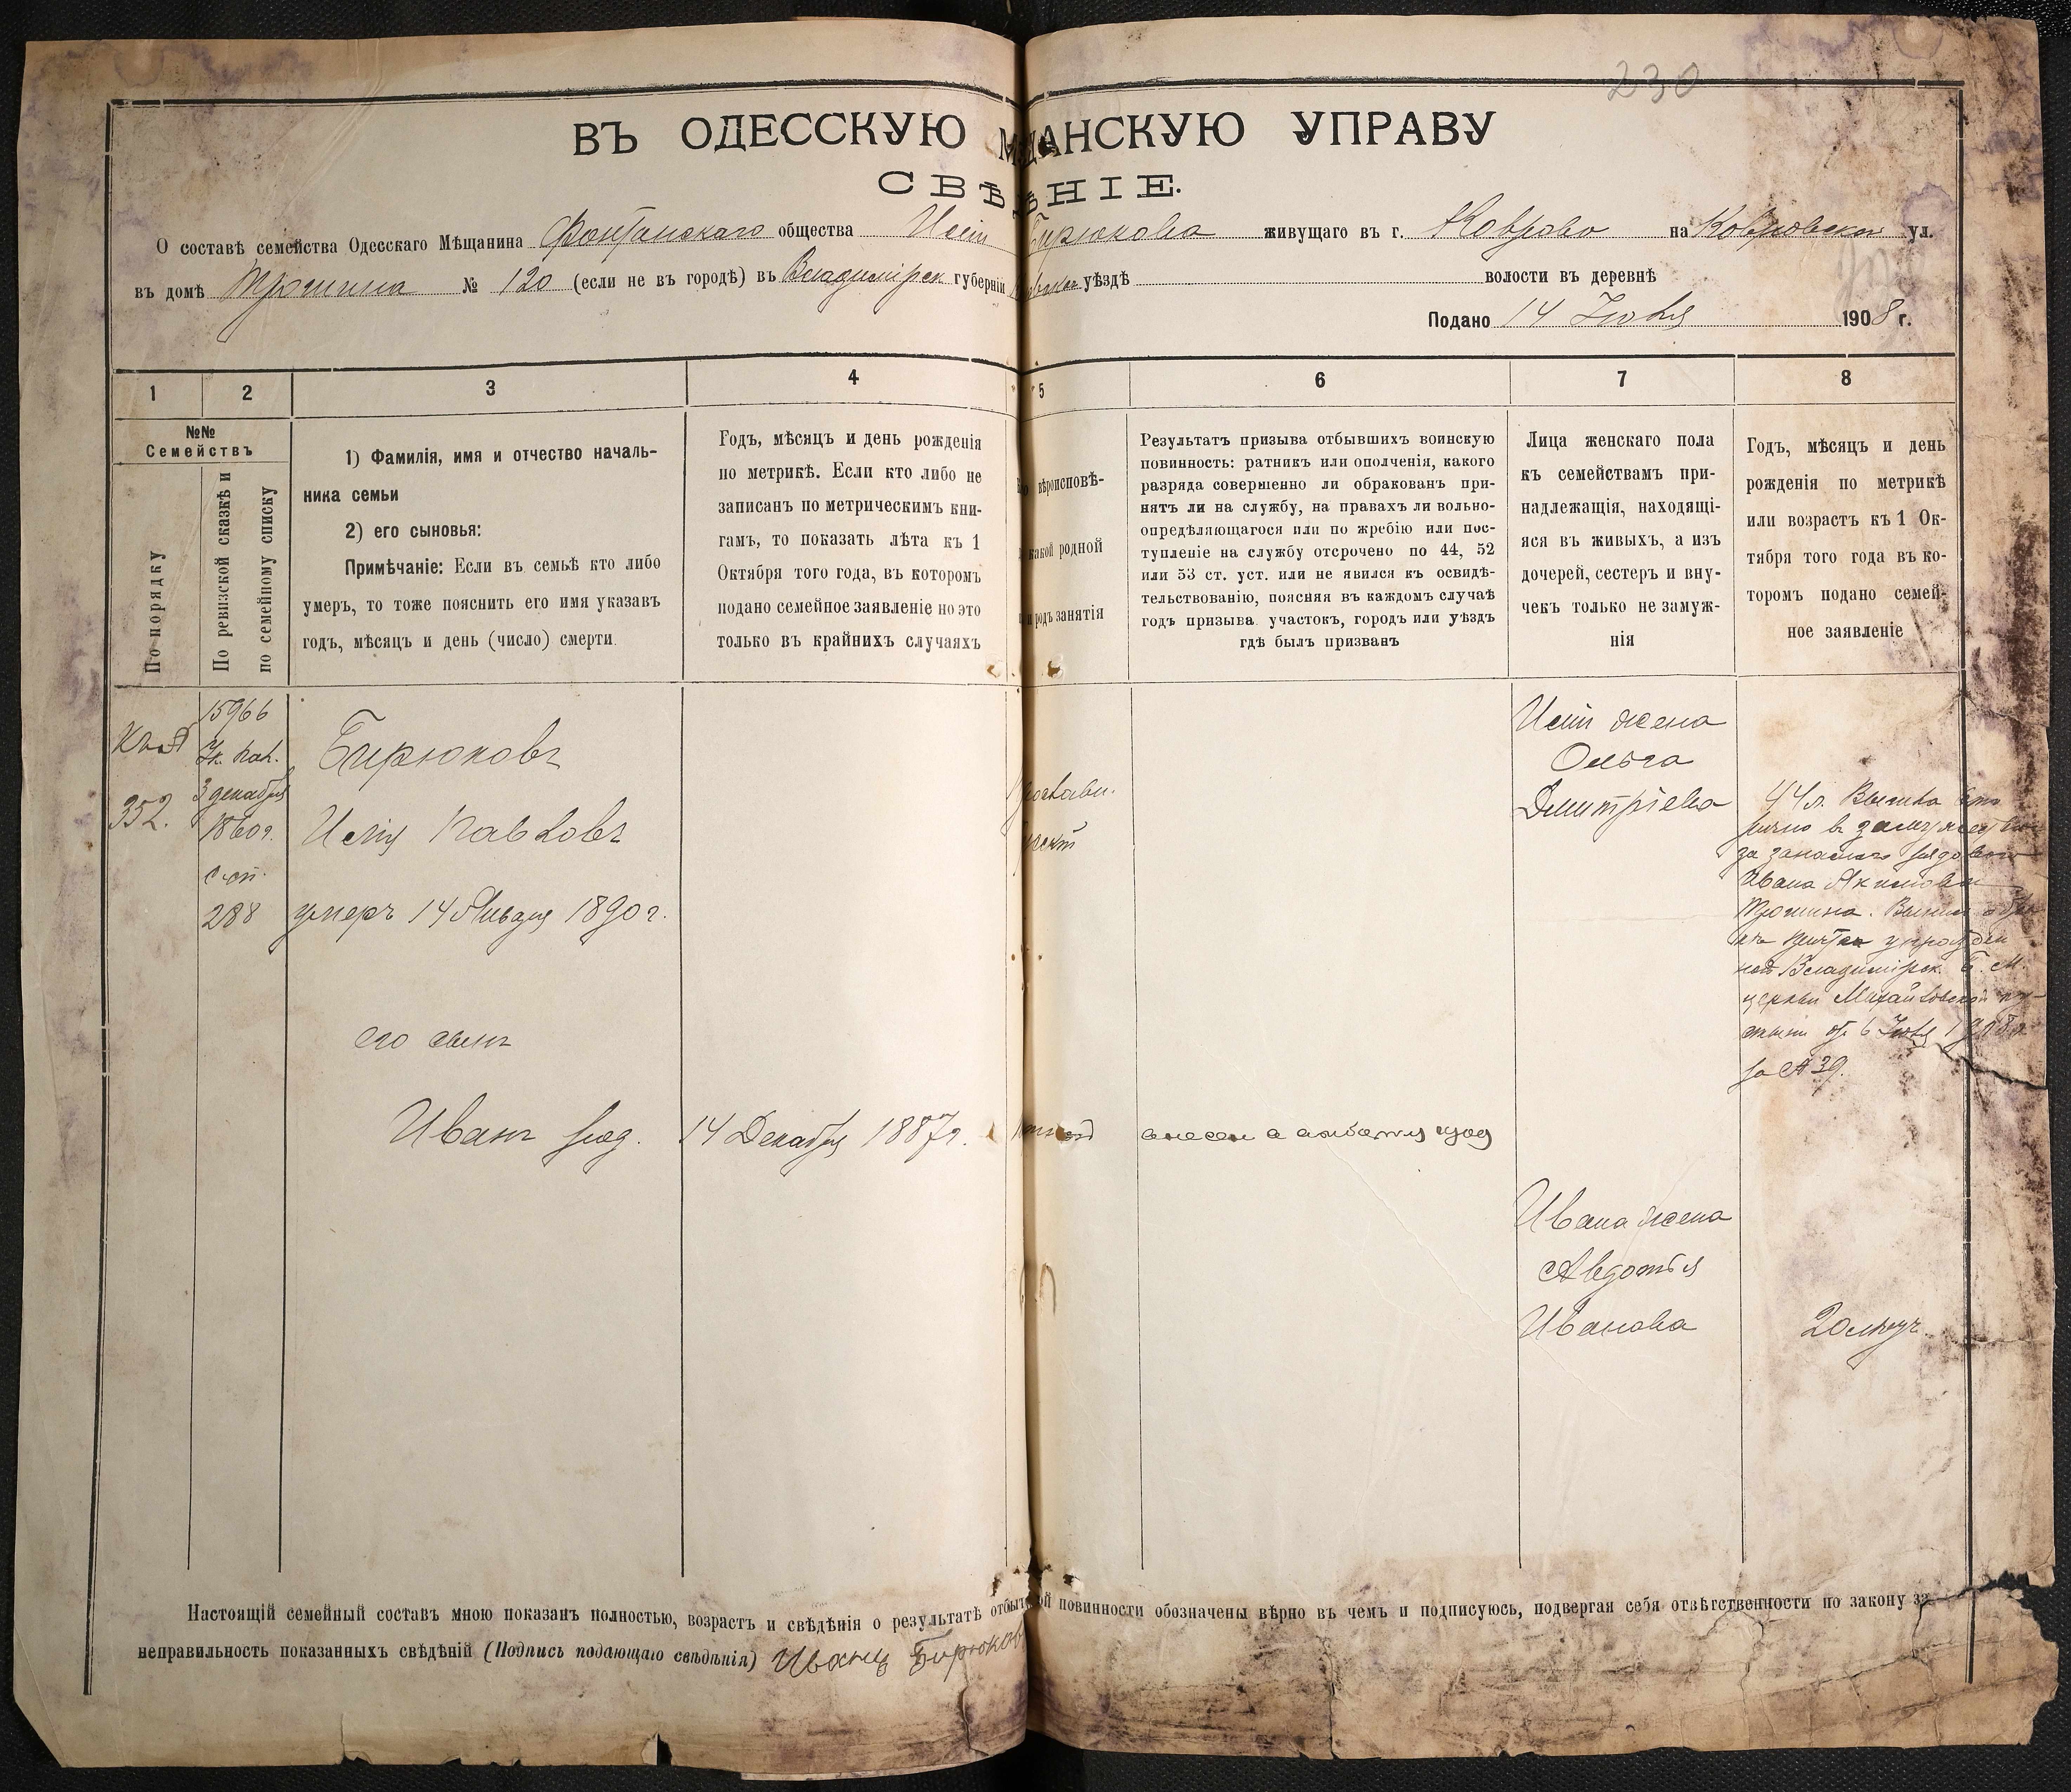 230
ВЪ ОДЕССКУЮ МѢЩАНСКУЮ УПРАВУ
СВѢДѢНІЕ.
О составѣ семейства Одесскаго Мѣщанина Фонтанскаго общества Исіи Бирюкова живущаго въ г. Коврово на Ковровской ул.
въ домѣ Трошина № 120 (если не въ городѣ) въ Владимірск губерніи уѣздѣ волости въ деревнѣ
Подано 14 Іюля 1908 г.
1 2 3 4 5 6 7 8
№№
Семействъ
По порядку
По ревизской сказкѣ и
по семейному списку
1) Фамилія, имя и отчество началь-
ника семьи
2) его сыновья:
Примѣчаніе: Если въ семьѣ кто либо
умеръ, то тоже пояснить его имя указавъ
годъ, мѣсяцъ и день (число) смерти
Годъ, мѣсяцъ и день рожденія
по метрикѣ. Если кто либо не
записанъ по метрическимъ кни-
гамъ, то показать лѣта къ 1
Октября того года, въ которомъ
подано семейное заявленіе но это
только въ крайнихъ случаяхъ
вѣроисповѣ-
какой родной
родъ занятія
Результатъ призыва отбывшихъ воинскую
повинность: ратникъ или ополченія, какого
разряда совершенно ли обракованъ при-
нятъ ли на службу, на правахъ ли вольно-
опредѣляющагося или по жребію или пос-
тупленіе на службу отсрочено по 44, 52
или 53 ст. уст. или не явился къ освидѣ-
тельствованію, поясняя въ каждомъ случаѣ
годъ призыва участокъ, городъ или уѣздъ
гдѣ былъ призванъ
Лица женскаго пола
къ семействамъ при-
надлежащія, находящі-
яся въ живыхъ, а изъ
дочерей, сестеръ и вну-
чекъ только не замуж-
нія
Годъ, мѣсяцъ и день
рожденія по метрикѣ
или возрастъ къ 1 Ок-
тября того года въ ко-
торомъ подано семей-
ное заявленіе
352.
15966
3 декабря
1860 г.
288
Бирюковъ
Исія Павловъ
умеръ 14 Января 1890 г.
его сынъ
Иванъ род.
14 Декабря 1887 г.
Исіи жена
Ольга
Дмитріева
44 л. Вышла вто
рично в замужество
за запаснаго рядового
Ивана Якимова
Трошина.
Владимірск.
церкви Михайловской
от 6 Іюля 1908 г.
за № 39.
Ивана жена
Авдотья
Иванова
20 лѣтъ
Настоящій семейный составъ мною показанъ полностью, возрастъ и свѣдѣнія о результатѣ повинности обозначены вѣрно въ чемъ и подписуюсь, подвергая себя отвѣтственности по закону за
неправильность показанныхъ свѣдѣній (Подпись подающаго свѣдѣнія) Иванъ Бирюковъ